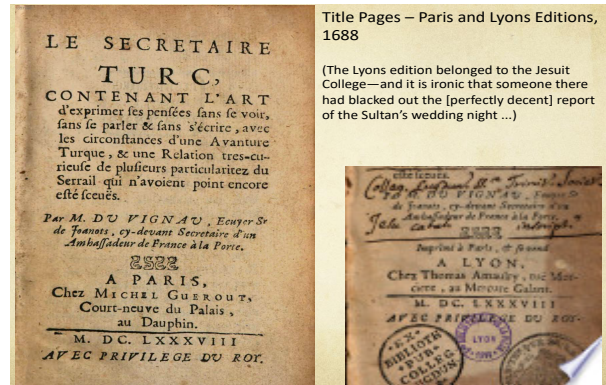 LE SECRETAIRE
TURC,
CONTENANT L'ART
d'exprimer ses pensées sans se voir,
sans se parler & sans s'écrire, avec
les circonstances d'une Avanture
Turque, & une Relation tres-cu-
rieuse de plusieurs particularitez du
Serrail qui n'avoient point encore
esté sceuës.
Par M. DU VIGNAU, Ecuyer Sr
de Joanots, cy-devant Secretaire d'un
Ambassadeur de France à la Porte.
A PARIS,
Chez MICHEL GUEROUT,
Court-neuve du Palais,
au Dauphin.
M. DC. LXXXVIII
AVEC PRIVILEGE DU ROY.
Title Pages – Paris and Lyons Editions,
1688
(The Lyons edition belonged to the Jesuit
College—and it is ironic that someone there
had blacked out the [perfectly decent] report
of the Sultan's wedding night ...)
esté sceuës.
Colleg. Trinit. Societ.
Par M. DU VIGNAU, Ecuyer Sr
de Joanots, cy-devant Secretaire d'un
Ambassadeur de France à la Porte.
Jesu
Imprimé à Paris, & se vend
A LYON,
Chez Thomas Amaulry, ruë Mer-
ciere, au Mercure Galant.
M. DC. LXXXVIII
AVEC PRIVILEGE DU ROY.
EX
BIBLIOTH
PUB.
COLLEG.
LYON